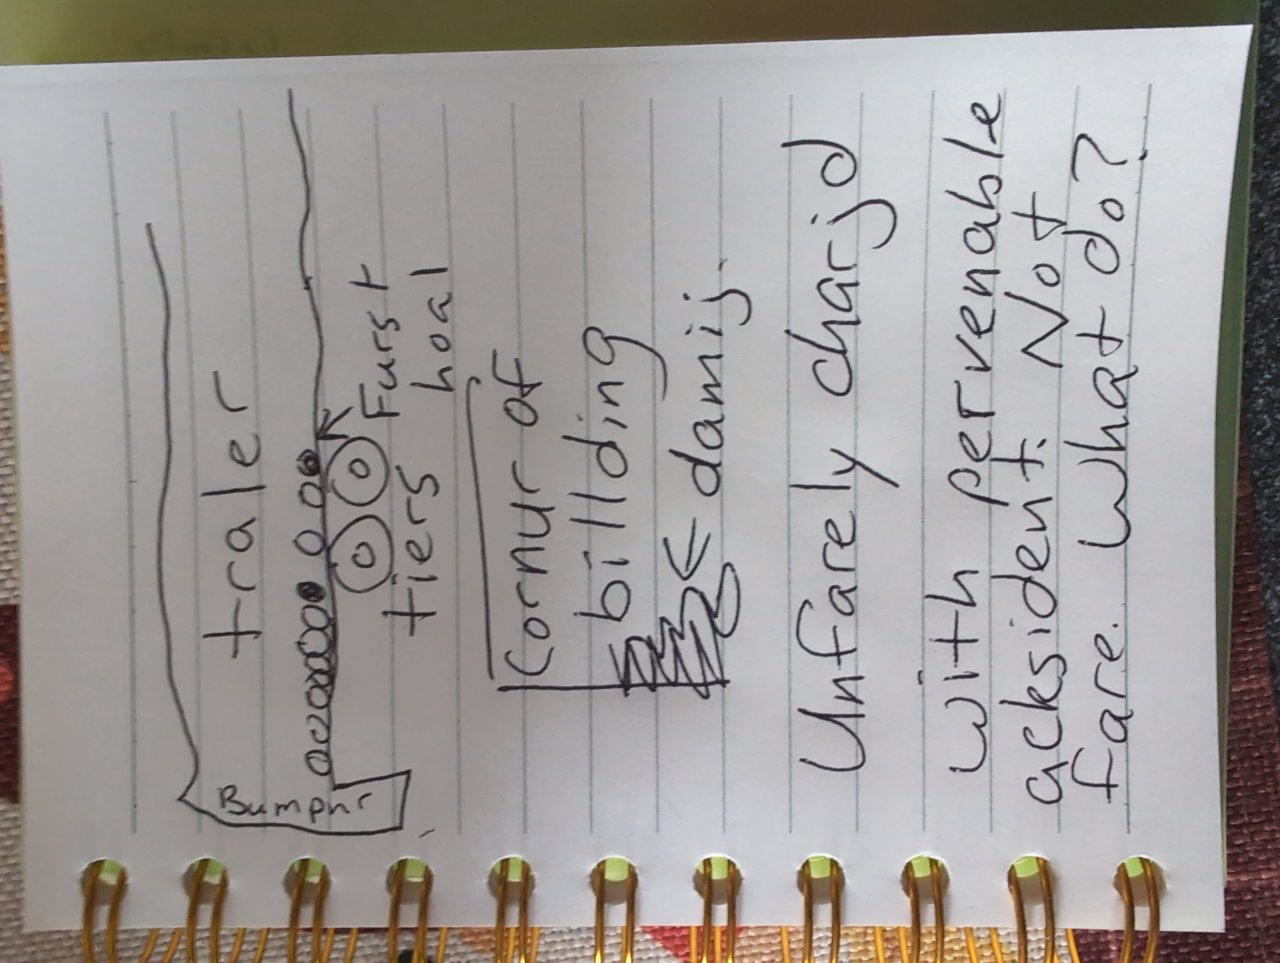 traler
Bumphr
Furst
tiers hoal
Cornur of
billding
damij.
Unfarely charjd
with pervenable
acksident. Not
fare. What do?